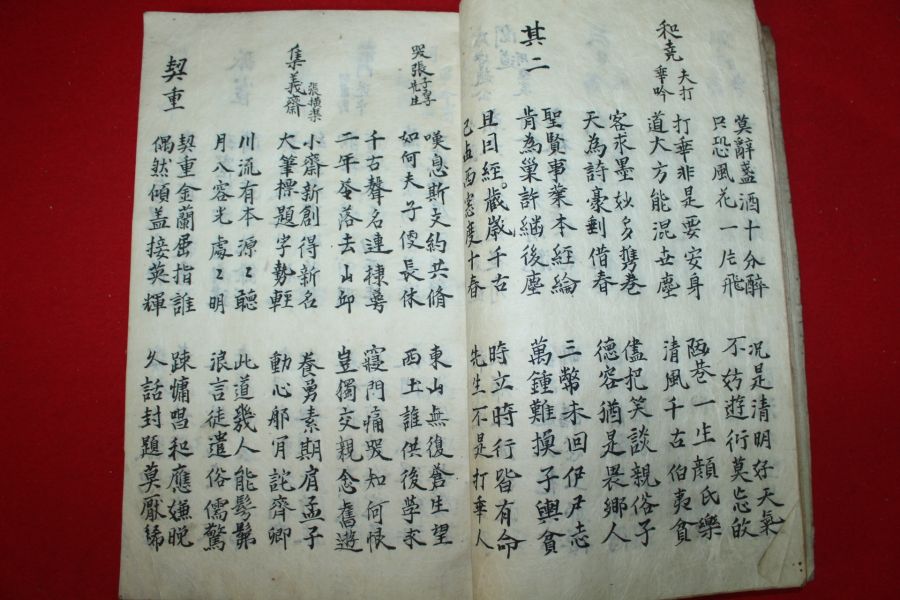 莫辭盞酒十分醉
只恐風花一片飛
況是清明好天氣
不妨遊衍莫忘故
和堯夫打乖吟
打乖非是要安身
道大方能混世塵
陋巷一生顔氏樂
清風千古伯夷貧
客求墨妙多携卷
天為詩豪剩借春
儘把笑談親俗子
德容猶是畏鄉人
其二
聖賢事業本經綸
肯為巢許繼後塵
三幣未回伊尹志
萬鍾難換子輿貧
且因經歲千古
已占西窓度十春
時立時行皆有命
先生不是打乖人
哭張子厚先生
嘆息斯文約共脩
如何夫子便長休
東山無復蒼生望
西土誰供後學求
千古聲名連棣萼
二年零落去山邱
寢門痛哭知何恨
豈獨交親念舊遊
集義齋 張橫渠
小齋新創得新名
大筆標題字勢輕
養勇素期肩孟子
動心那肯詫齊卿
川流有本源〻聽
月入容光處〻明
此道幾人能髣髴
浪言徒遣俗儒驚
契重
契重金蘭屈指誰
偶然傾盖接英輝
踈慵唱和應嫌晚
久話封題莫厭稀